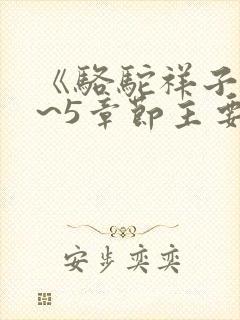 《骆驼祥子
~5章节主要
安步奕奕